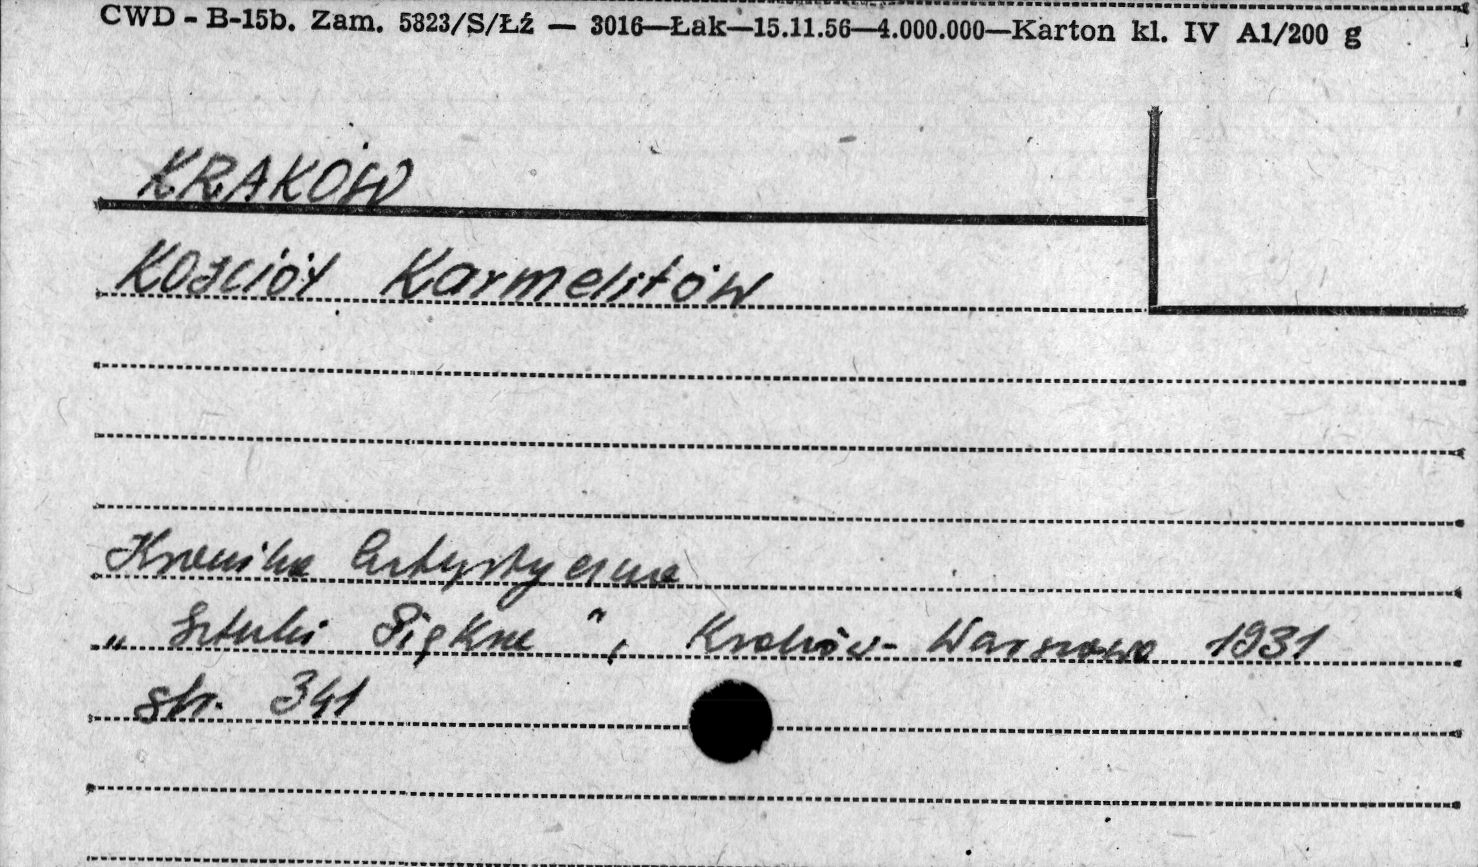 CWD - B-15b. Zam. 5823/S/Łź — 3016—Łak—15.11.56—4.000.000—Karton kl. IV A1/200 g
KRAKÓW
Kościół Karmelitów
Kronika Artystyczna
„Sztuki Piękne", Kraków-Warszawa 1931
str. 341